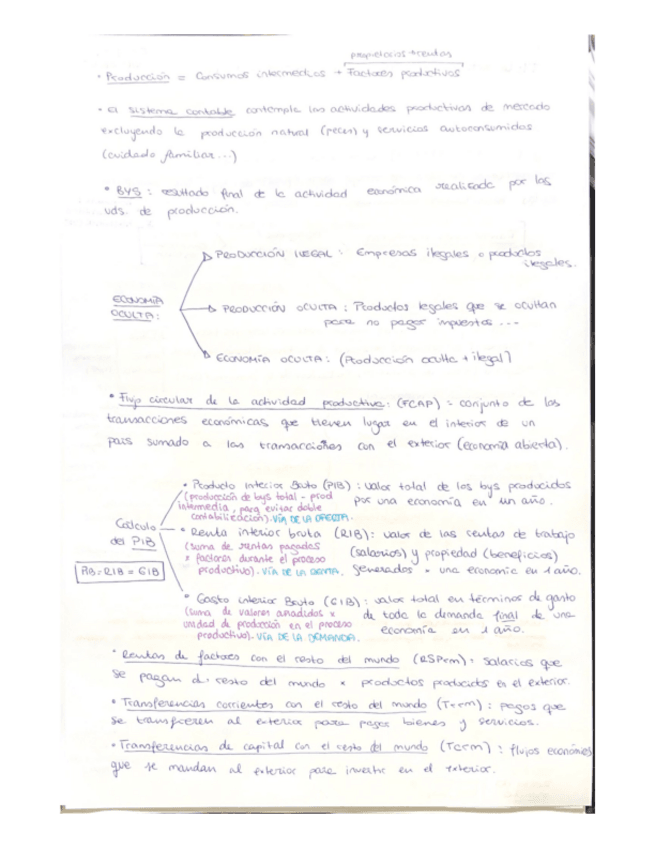 propietarios + rentas
• Producción = Consumos intermedios + Factores productivos
• el sistema contable contempla las actividades productivas de mercado
excluyendo la producción natural (peces) y servicios autoconsumidos
(cuidado familiar...)
• BYS: resultado final de la actividad económica realizada por las
uds. de producción.
ECONOMÍA
OCULTA:
PRODUCCIÓN ILEGAL: Empresas ilegales o productos
ilegales.
PRODUCCIÓN OCULTA: Productos legales que se ocultan
para no pagar impuestos...
ECONOMÍA OCULTA: (Producción oculta + ilegal)
• Flujo circular de la actividad productiva: (FCAP) = conjunto de las
transacciones económicas que tienen lugar en el interior de un
país sumado a las transacciones con el exterior (economía abierta).
Cálculo
del PIB
PIB=RIB=GIB
• Producto Interior Bruto (PIB): valor total de los bys producidos
por una economía en un año.
(producción de bys total - prod
intermedia, para evitar doble
contabilización). VÍA DE LA OFERTA.
• Renta interior bruta (RIB): valor de las rentas de trabajo
(salarios) y propiedad (beneficios)
generados x una economía en 1 año.
(suma de rentas pagadas
x factores durante el proceso
productivo). VÍA DE LA RENTA.
• Gasto interior Bruto (GIB): valor total en términos de gasto
de toda la demanda final de una
economía en 1 año.
(suma de valores añadidos x
unidad de producción en el proceso
productivo). VÍA DE LA DEMANDA.
• Rentas de factores con el resto del mundo (RSPrm): salarios que
se pagan resto del mundo x productos producidos en el exterior.
• Transferencias corrientes con el resto del mundo (Tcrm): pagos que
se transfieren al exterior para pagar bienes y servicios.
• Transferencias de capital con el resto del mundo (Tcrm): flujos económ
que se mandan al exterior para invertir en el exterior.